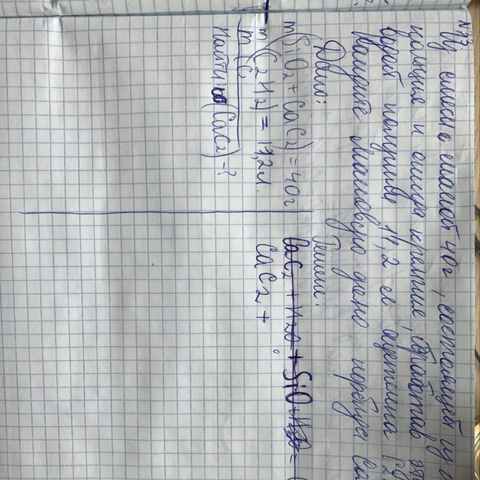 N77
Из смеси массой 40г, состоящей из
кальция и оксида кремния, обработав
водой получили 11,2 л ацетилена
Найдите массовую долю карбида Ca
Дано:
m(SiO2 + CaC2) = 40г
m(C2H2) = 11,2л.
Найти: ω(CaC2) - ?
Решение:
CaC2 +